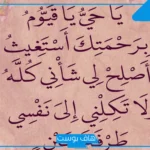 يَا حَيُّ يَا قَيُّومُ
بِرَحْمَتِكَ أَسْتَغِيثُ
أَصْلِحْ لِي شَأْنِي كُلَّهُ
لَا تَكِلْنِي إِلَى نَفْسِي
طَرْفَةَ عَيْنٍ
هاف بوست